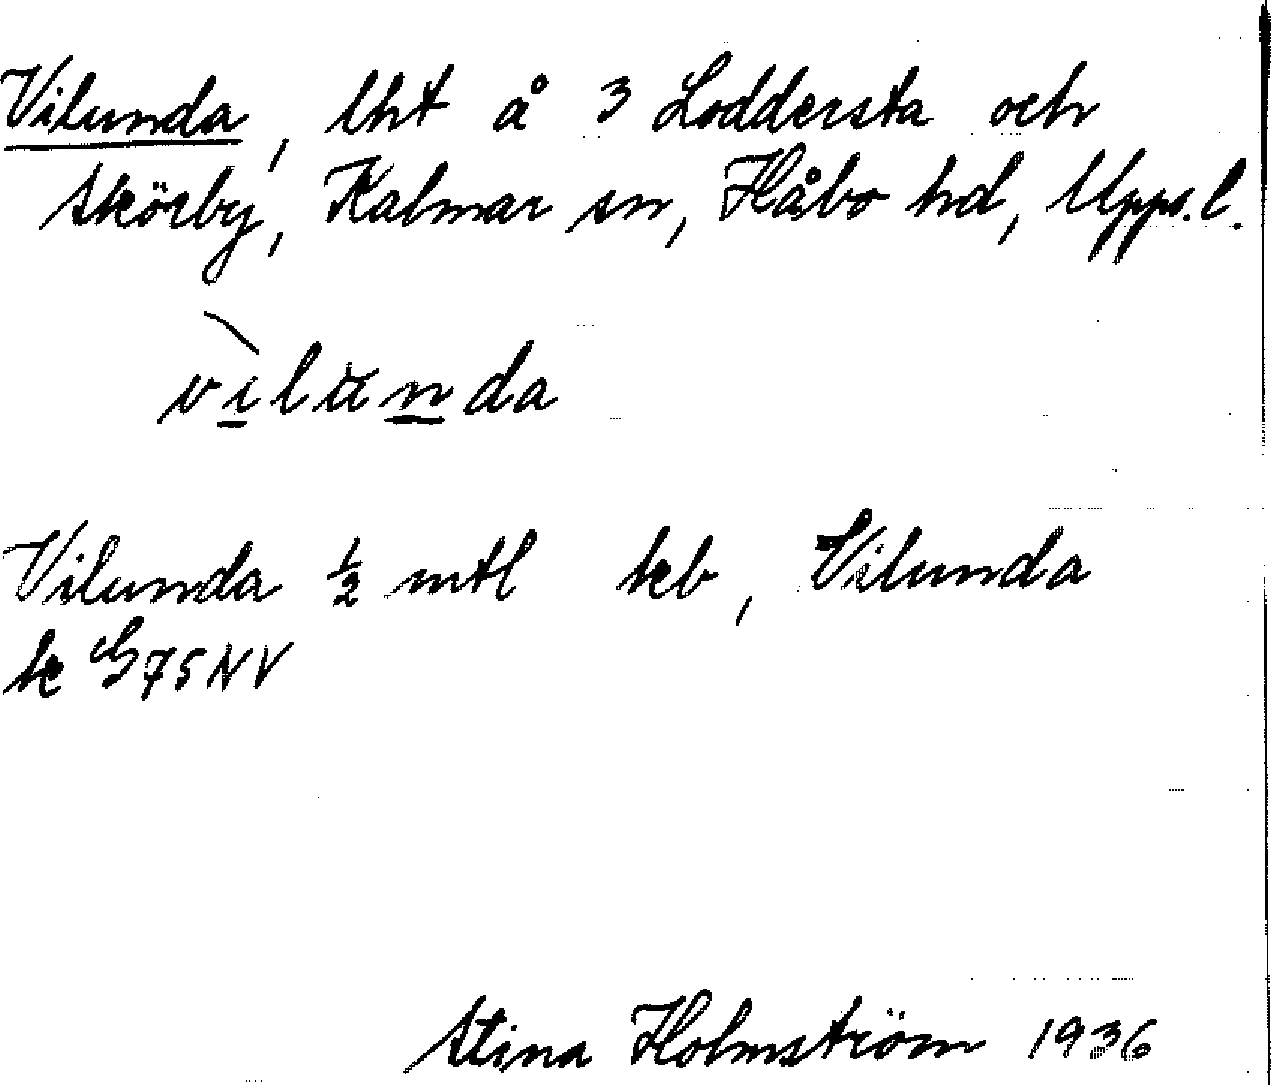 Vilunda, lht å 3 Loddersta och
Skörby, Kalmar sn, Håbo hd, Upps. l.
vìlunda
Vilunda ½ mtl kb, Vilunda
k G75NV
Stina Holmström 1936